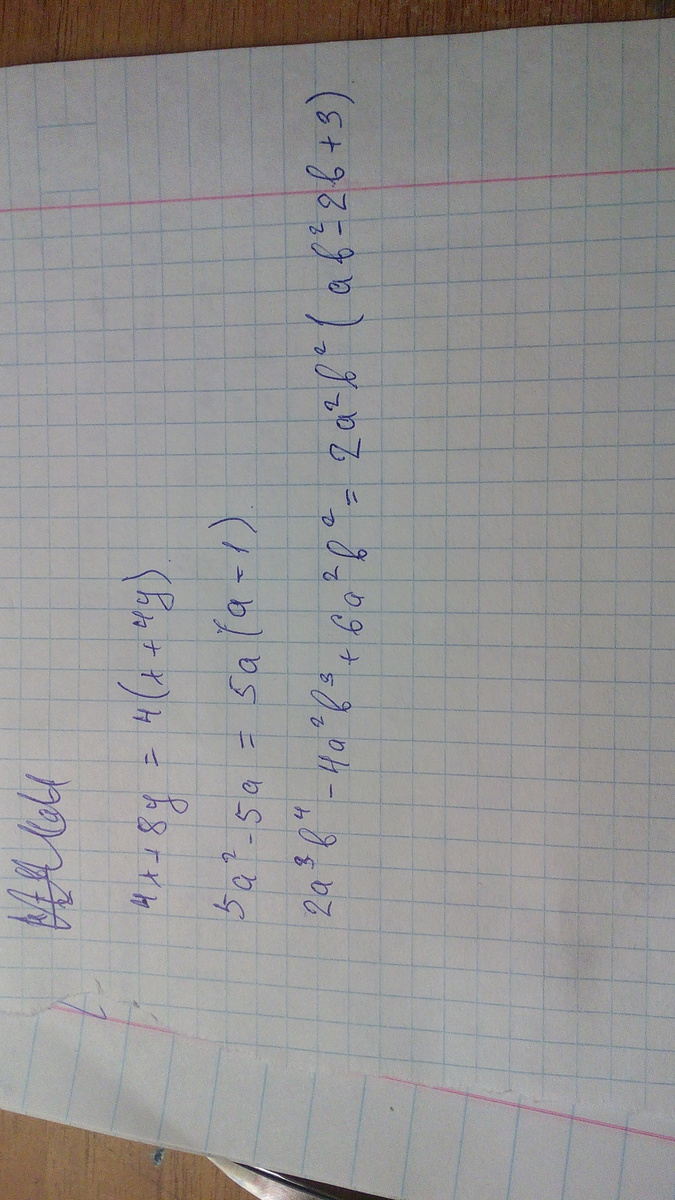 4x+8y = 4(x+4y)
5a²-5a = 5a(a-1)
2a³b⁴-4a²b³+6a²b² = 2a²b²(ab²-2b+3)